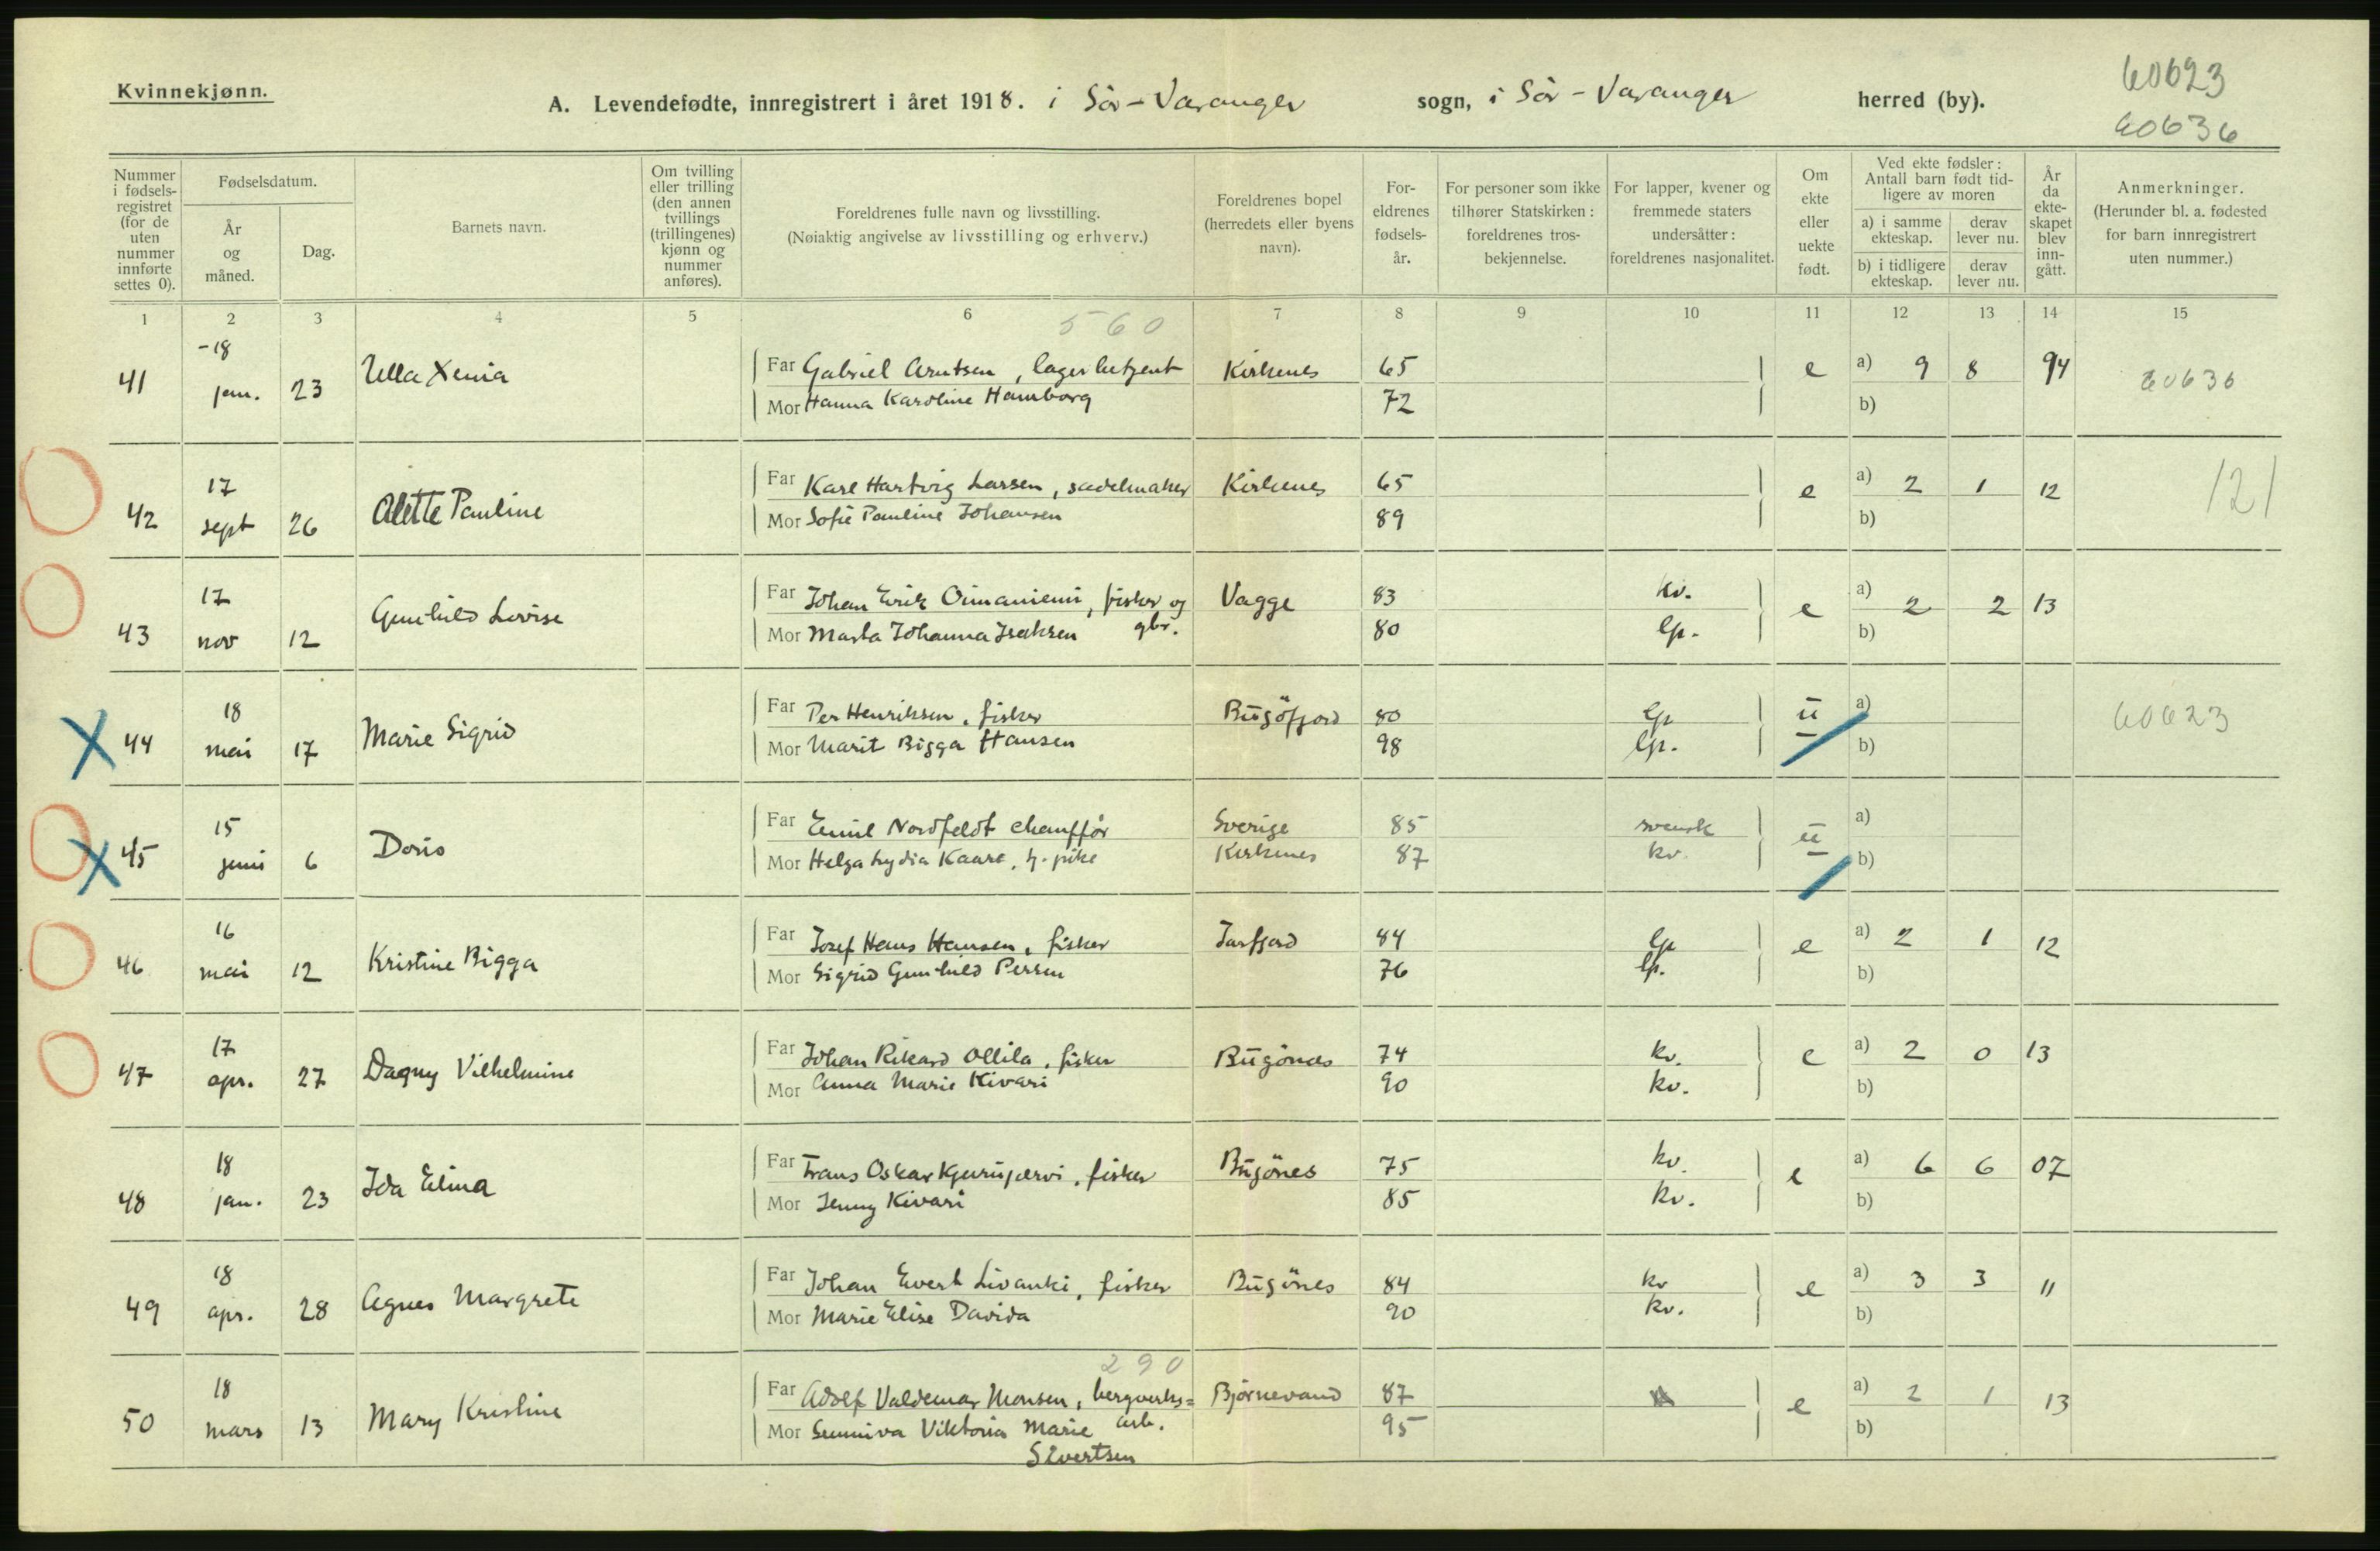 60623
Kvinnekjønn.
A. Levendefødte, innregistrert i året 1918. i Sör-Varanger sogn, i Sör-Varanger herred (by).
60636
Nummer i fødselsregistret (for de uten nummer innførte settes 0).
Fødselsdatum.
År og måned.
Dag.
Barnets navn.
Om tvilling eller trilling (den annen tvillings (trillingenes) kjønn og nummer anføres).
Foreldrenes fulle navn og livsstilling.
(Nøiaktig angivelse av livsstilling og erhverv.)
Foreldrenes bopel (herredets eller byens navn).
Foreldrenes fødselsår.
For personer som ikke tilhører Statskirken: foreldrenes trosbekjennelse.
For lapper, kvener og fremmede staters undersåtter: foreldrenes nasjonalitet.
Om ekte eller uekte født.
Ved ekte fødsler: Antall barn født tidligere av moren
a) i samme ekteskap.
derav lever nu.
b) i tidligere ekteskap.
derav lever nu.
År da ekteskapet blev inngått.
Anmerkninger.
(Herunder bl. a. fødested for barn innregistrert uten nummer.)
1 2 3 4 5 6 7 8 9 10 11 12 13 14 15
560
41 -18 jan. 23 Ulla Xenia
Far Gabriel Arntsen, lagerbetjent Kirkenes 65 e a) 9 8 94 60636
Mor Hanna Karoline Hamborg 72 b)
42 17 sept 26 Alette Pauline
Far Karl Hartvig Larsen, sadelmaker Kirkenes 65 e a) 2 1 12 121
Mor Sofie Pauline Johansen 89 b)
43 17 nov 12 Gunhild Lovise
Far Johan Erik Oimaniemi, fisker og gbr. Vagge 83 kv. e a) 2 2 13
Mor Marta Johanna Isaksen 80 lp. b)
44 18 mai 17 Marie Sigrid
Far Per Henriksen, fisker Bugöfjord 80 lp u a) 60623
Mor Marit Bigga Hansen 98 lp. b)
45 15 juni 6 Doris
Far Emil Nordfeldt chaufför Sverige 85 svensk u a)
Mor Helga Lydia Kaare, h. pike Kirkenes 87 kv. b)
46 16 mai 12 Kristine Bigga
Far Josef Hans Hansen, fisker Jarfjord 84 lp e a) 2 1 12
Mor Sigrid Gunhild Persen 76 lp. b)
47 17 apr. 27 Dagny Vilhelmine
Far Johan Rikard Ollila, fisker Bugönes 74 kv. e a) 2 0 13
Mor Anna Marie Kivari 90 kv. b)
48 18 jan. 23 Ida Elina
Far Frans Oskar Kjerujærvi, fisker Bugönes 75 kv. e a) 6 6 07
Mor Jenny Kivari 85 kv. b)
49 18 apr. 28 Agnes Margrete
Far Johan Evert Livanki, fisker Bugönes 84 kv e a) 3 3 11
Mor Marie Elise Davida 90 kv. b)
290
50 18 mars 13 Mary Kristine
Far Adolf Valdemar Monsen, bergverks= arb. Björnevand 87 e a) 2 1 13
Mor Sunniva Viktoria Marie Sivertsen 95 b)